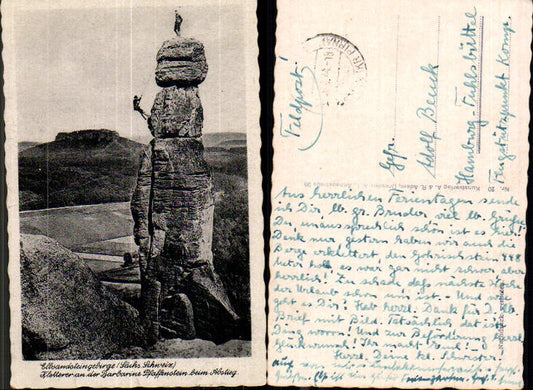 Elbsandsteingebirge (Sächs. Schweiz)
Kletterer an der Barbarine Pfaffenstein beim Abstieg.
Feldpost!
Gefr.
Adolf Benck
Hamburg-Fuhlsbüttel
Flugstützpunkt Komp.
Nr. 20 Kunstverlag
Aus herrlichen Ferientagen sende
ich Dir lb. gr. Bruder viel lb. Grüße
Du unaussprechlich schön ist es hier!
Denk nur gestern haben wir auch die
Berge erklettert den Gohrischstein 448
Meter hoch es war gar nicht schwer aber
herrlich! Zu schade daß nächste Woche
der Urlaub schon um ist. Und wie
geht es Dir? Hab herzl. Dank für D. lb.
Brief mit Bild. Tatsächlich das ist
Und nur
Glühwurmel! Ihr macht
Herzl. Deine kl. Schwester